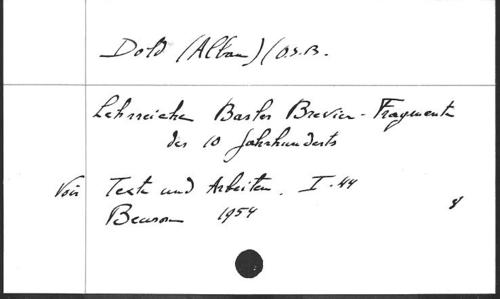 Dold (Alban) (O.S.B.
Lehrreiche Basler Brevier-Fragmente
des 10 Jahrhunderts
Voir Texte und Arbeiten. I-44
Beuron 1954